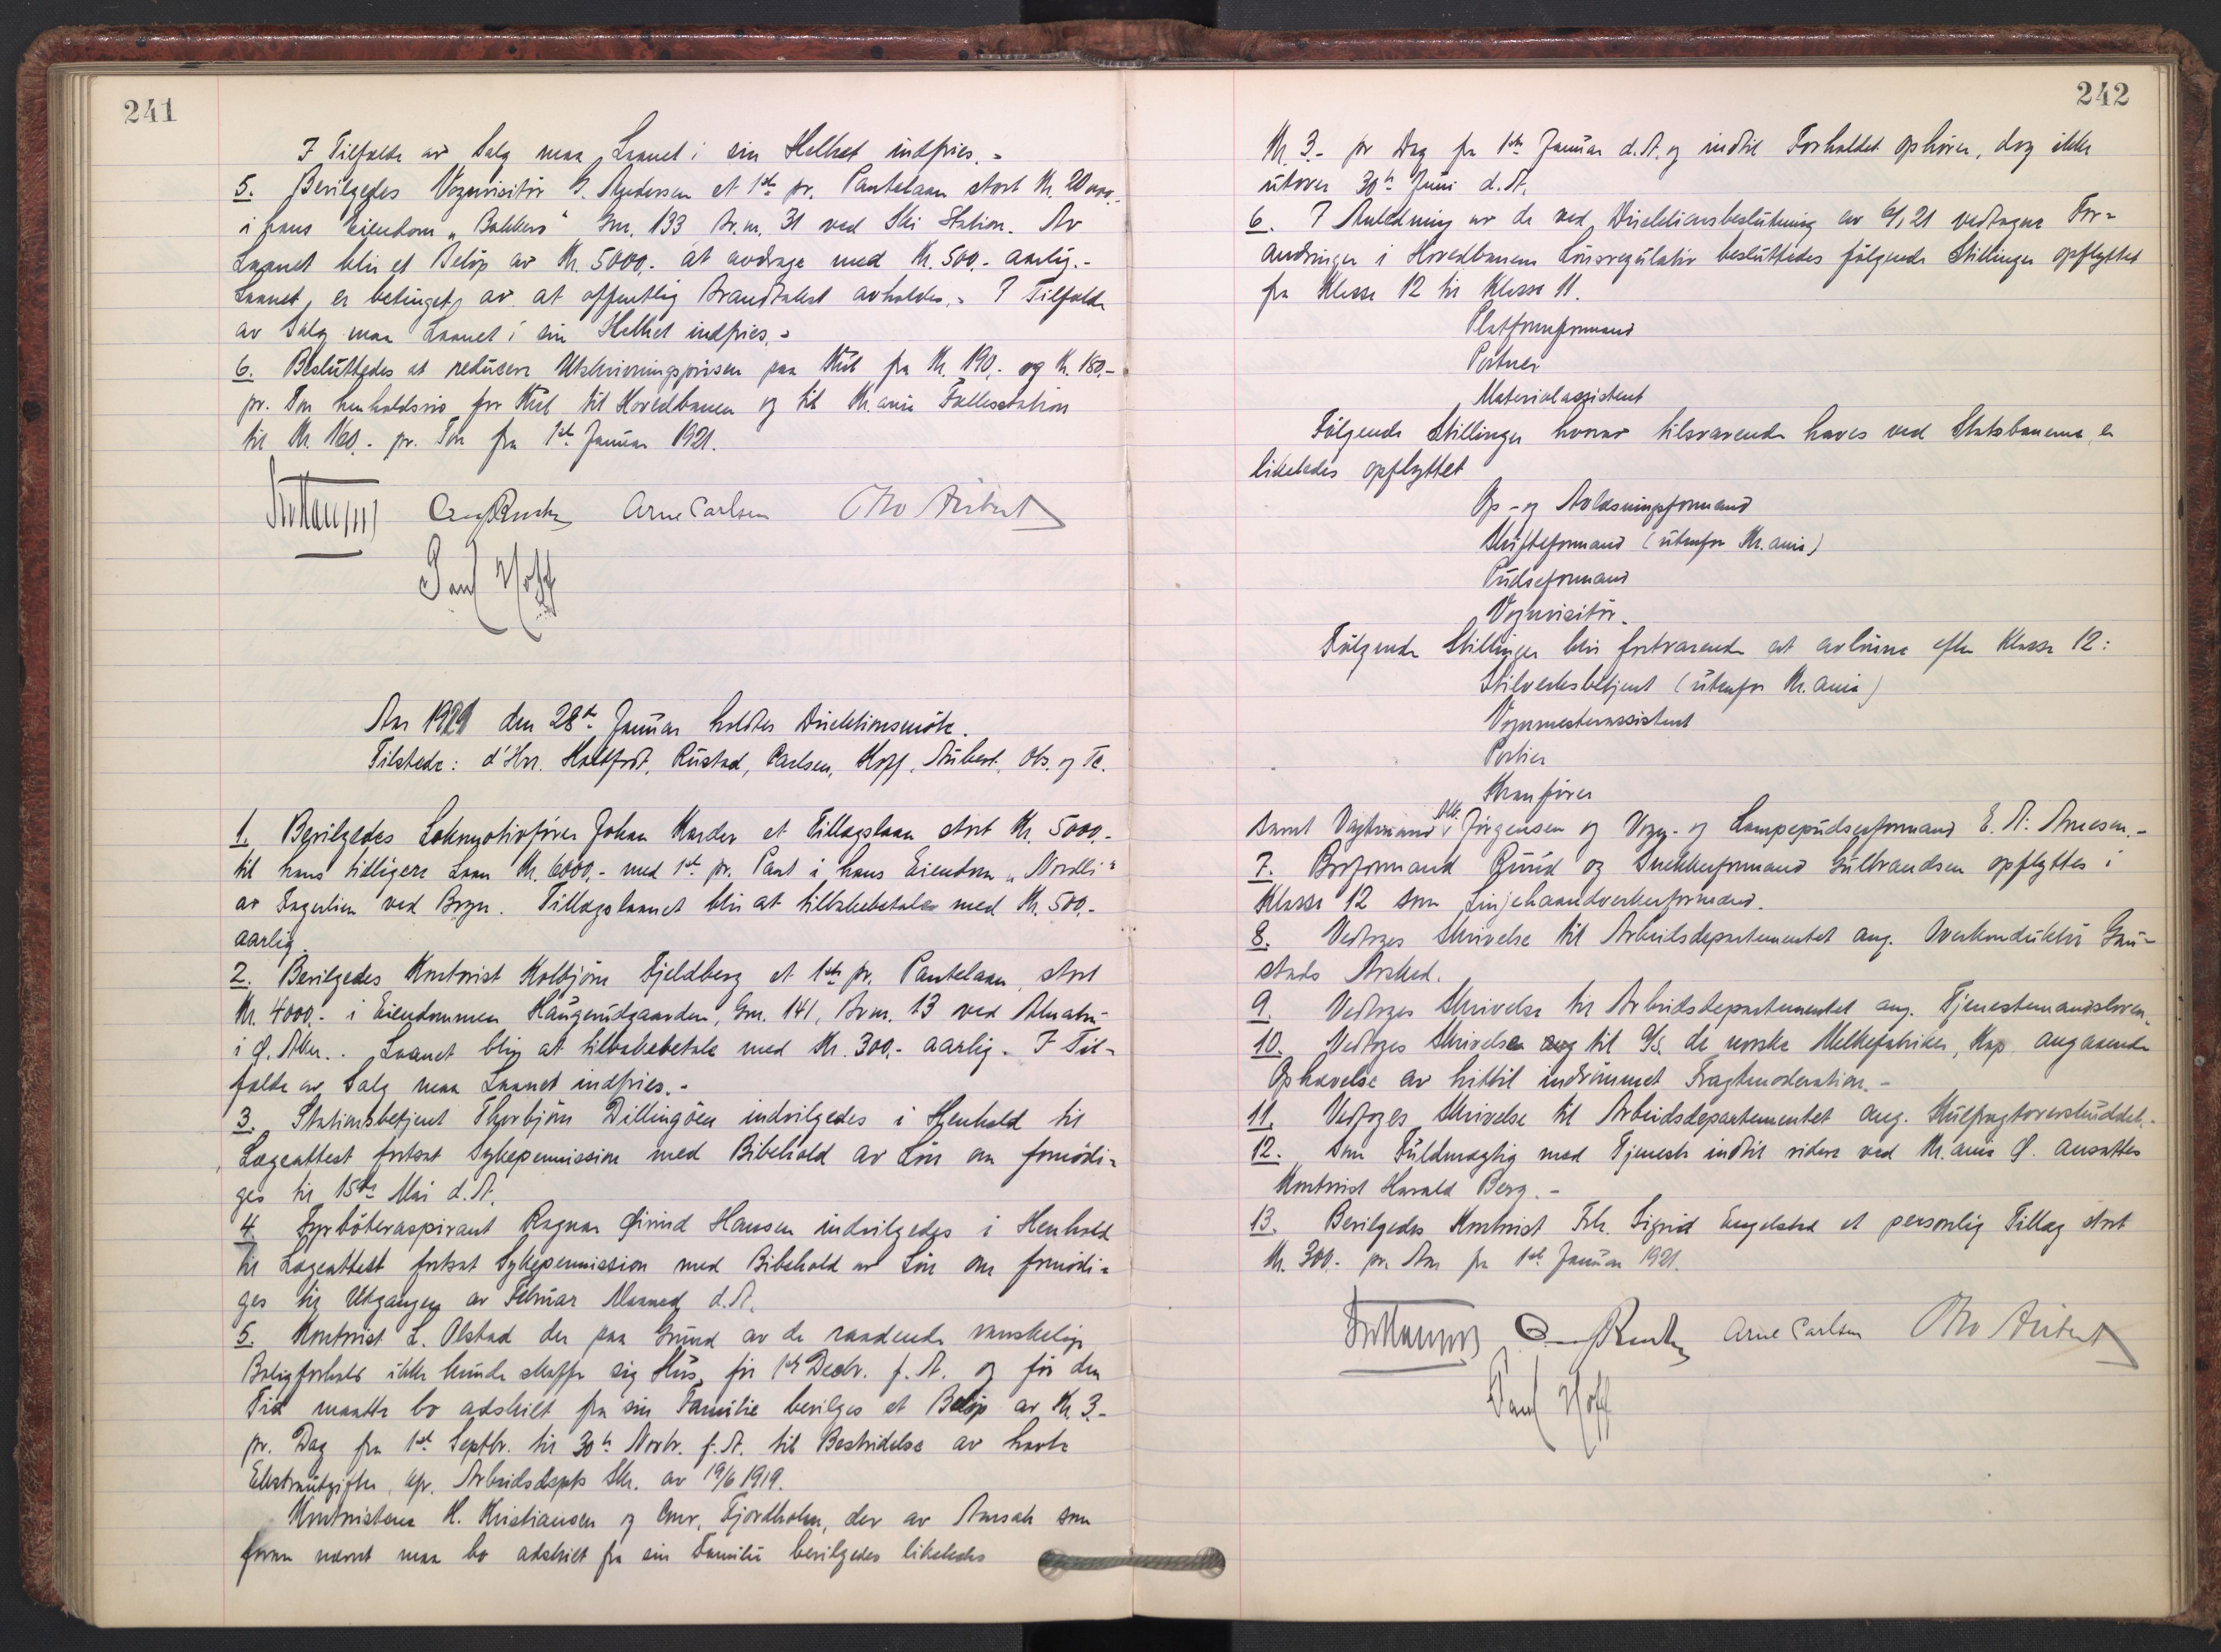 241
I Tilfælde av Salg maa Laanet i sin Helhet indfries. -
5. Bevilgedes Vognvisitør G. Andersen et 1ste pr. Pantelaan stort Kr. 20 000.-
i hans Eiendom „Bakkero" Gnr. 133 Br.nr. 31 ved Ski Station. Av
Laanet blir et Beløp av Kr. 5000.- at avdrage med Kr. 500.- aarlig.-
Laanet er betinget av at offentlig Brandtakst avholdes. - I Tilfælde
av Salg maa Laanet i sin Helhet indfries. -
6. Besluttedes at reducere Utskrivningsprisen paa Kul fra Kr. 190.- og Kr. 180.-
pr. Ton henholdsvis for Kul til Hovedbanen og til Kr.ania Fællesstation
til Kr. 160.- pr. Ton fra 1ste Januar 1921.
Arne Carlsen Otto Aubert
Paul Hoff
Aar 1921 den 28de Januar holdtes Direktionsmøte.
Tilstede: d'Hrr. Holtfodt, Rustad, Carlsen, Hoff, Aubert, Obs. og Tc.
1. Bevilgedes Lokomotivfører Johan Karder et Tillægslaan stort Kr. 5000.-
til hans tidligere Laan Kr. 6000.- med 1ste pr. Pant i hans Eiendom „Nordli"
av Fagerlien ved Bryn. Tillægslaanet blir at tilbakebetale med Kr. 500.-
aarlig.
2. Bevilgedes Kontorist Kolbjørn Fjeldberg et 1ste pr. Pantelaan stort
Kr. 4000.- i Eiendommen Haugerudgaarden, Gnr. 141, Brnr. 13 ved Alnabru
i Ø. Aker. Laanet blir at tilbakebetale med Kr. 300.- aarlig. I Til-
fælde av Salg maa Laanet indfries. -
3. Stationsbetjent Thorbjørn Dillingøen indvilgedes i Henhold til
Lægeattest fortsat Sykepermission med Bibehold av Løn om fornødi-
ges til 15de Mai d.A.
4. Fyrbøteraspirant Ragnar Øivind Hansen indvilgedes i Henhold
til Lægeattest fortsat Sykepermission med Bibehold av Løn om fornødi-
ges til Utgangen av Februar Maaned d.A.
5. Kontorist L. Olstad der paa Grund av de raadende vanskelige
Boligforhold ikke kunde skaffe sig Hus før 1ste Decbr. f.A. og før den
Tid maatte bo adskilt fra sin Familie bevilges et Beløp av Kr. 3.-
pr. Dag fra 1ste Septbr. til 30te Novbr. f.A. til Bestridelse av havte
Ekstrautgifter, cfr. Arbeidsdepts Skr. av 19/6 1919.
Kontoristene H. Kristiansen og Fjordholm, der av Aarsak som
foran nævnt maa bo adskilt fra sin Familie bevilgedes likeledes
242
Kr. 3.- pr Dag fra 1ste Januar d.A. og indtil Forholdet ophører, dog ikke
utover 30te Juni d.A.
6. I Anledning av de ved Direktionsbeslutning av 6/1 21 vedtagne For-
andringer i Hovedbanens Lønsregulativ besluttedes følgende Stillinger opflyttet
fra Klasse 12 til Klasse 11.
Platformformand
Portner
Materialassistent
Følgende Stillinger hvorav tilsvarende haves ved Statsbanerne, er
likeledes opflyttet
Op- og Avlæsningsformand
Skifteformand (utenfor Kr.ania)
Pudseformand
Vognvisitør.
Følgende Stillinger blir fortvarende at avlønne efter Klasse 12:
Stilverksbetjent (utenfor Kr.ania)
Vognmesterassistent
Portier
Kranfører
samt Vagtmand Jørgensen og Vogn- og Lampepudserformand E. A. Arnesen.-
7. Broformand Ruud og Snekkerformand Gulbrandsen opflyttes i
Klasse 12 som Linjehaandverkerformænd.
8. Vedtoges Skrivelse til Arbeidsdepartementet ang. Overkonduktør Gau-
stads Avsked.
9. Vedtoges Skrivelse til Arbeidsdepartementet ang. Tjenestemandsloven.
10. Vedtoges Skrivelse til A/S. de norske Melkefabriker, Kap angaaende
Ophævelse av hittil indrømmet Fragtmoderation. -
11. Vedtoges Skrivelse til Arbeidsdepartementet ang. Kulfragtoverskuddet.-
12. Som Fuldmægtig med Tjeneste indtil videre ved Kr.ania Ø. ansattes
Kontorist Harald Berg. -
13. Bevilgedes Kontorist Frk. Sigrid Engelstad et personlig Tillæg stort
Kr. 300.- pr. Aar fra 1ste Januar 1921.
Arne Carlsen Otto Aubert
Paul Hoff